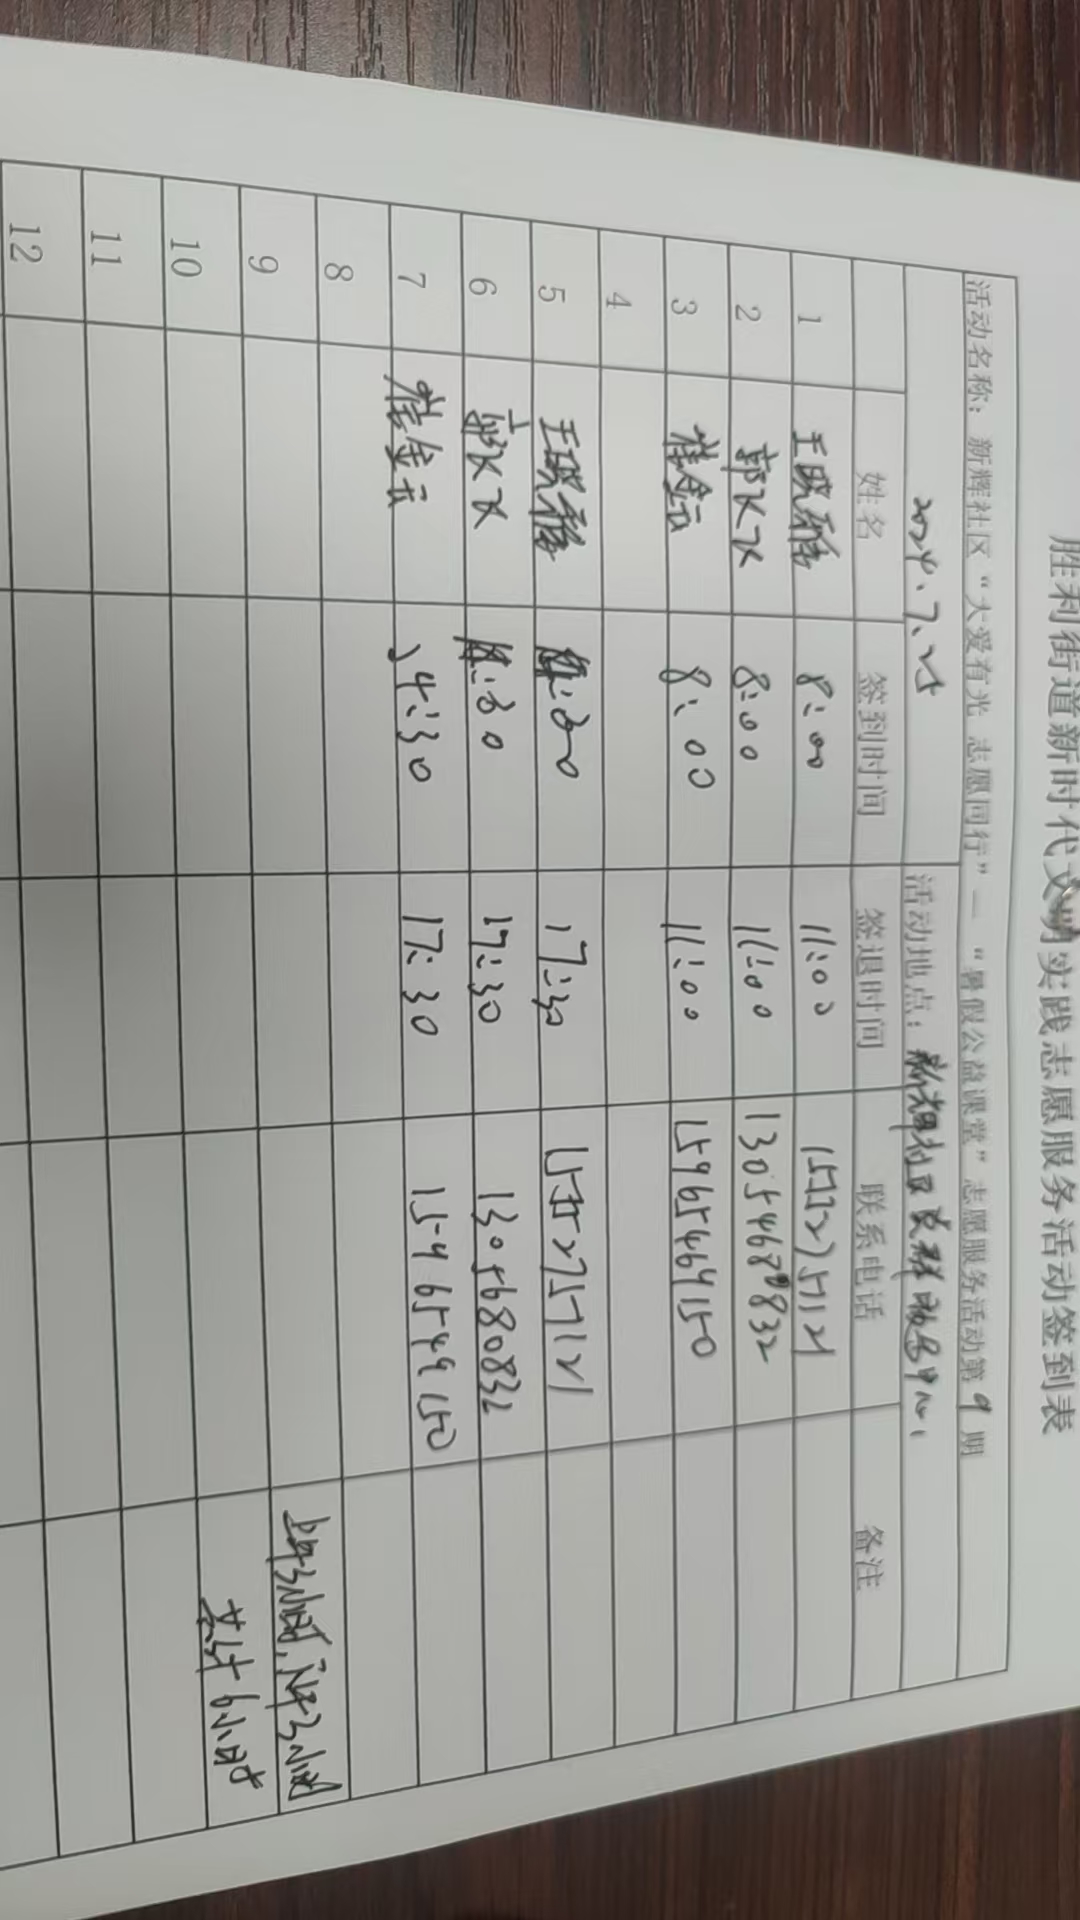 胜利街道新时代文明实践志愿服务活动签到表
活动名称：新辉社区“大爱有光 志愿同行”—“暑假公益课堂”志愿服务活动第9期
2024.7.25 活动地点：新辉社区党群服务中心
姓名 签到时间 签退时间 联系电话 备注
1 王晓 8:00 11:00
2 郭 8:00 11:00
3 崔金云 8:00 11:00 15965469150
4
5 王晓 17:30
6 郭 17:30 1305680832
7 崔金云 14:30 17:30 15965469150
8
9 上午3小时,下午3小时
10 共计6小时
11
12